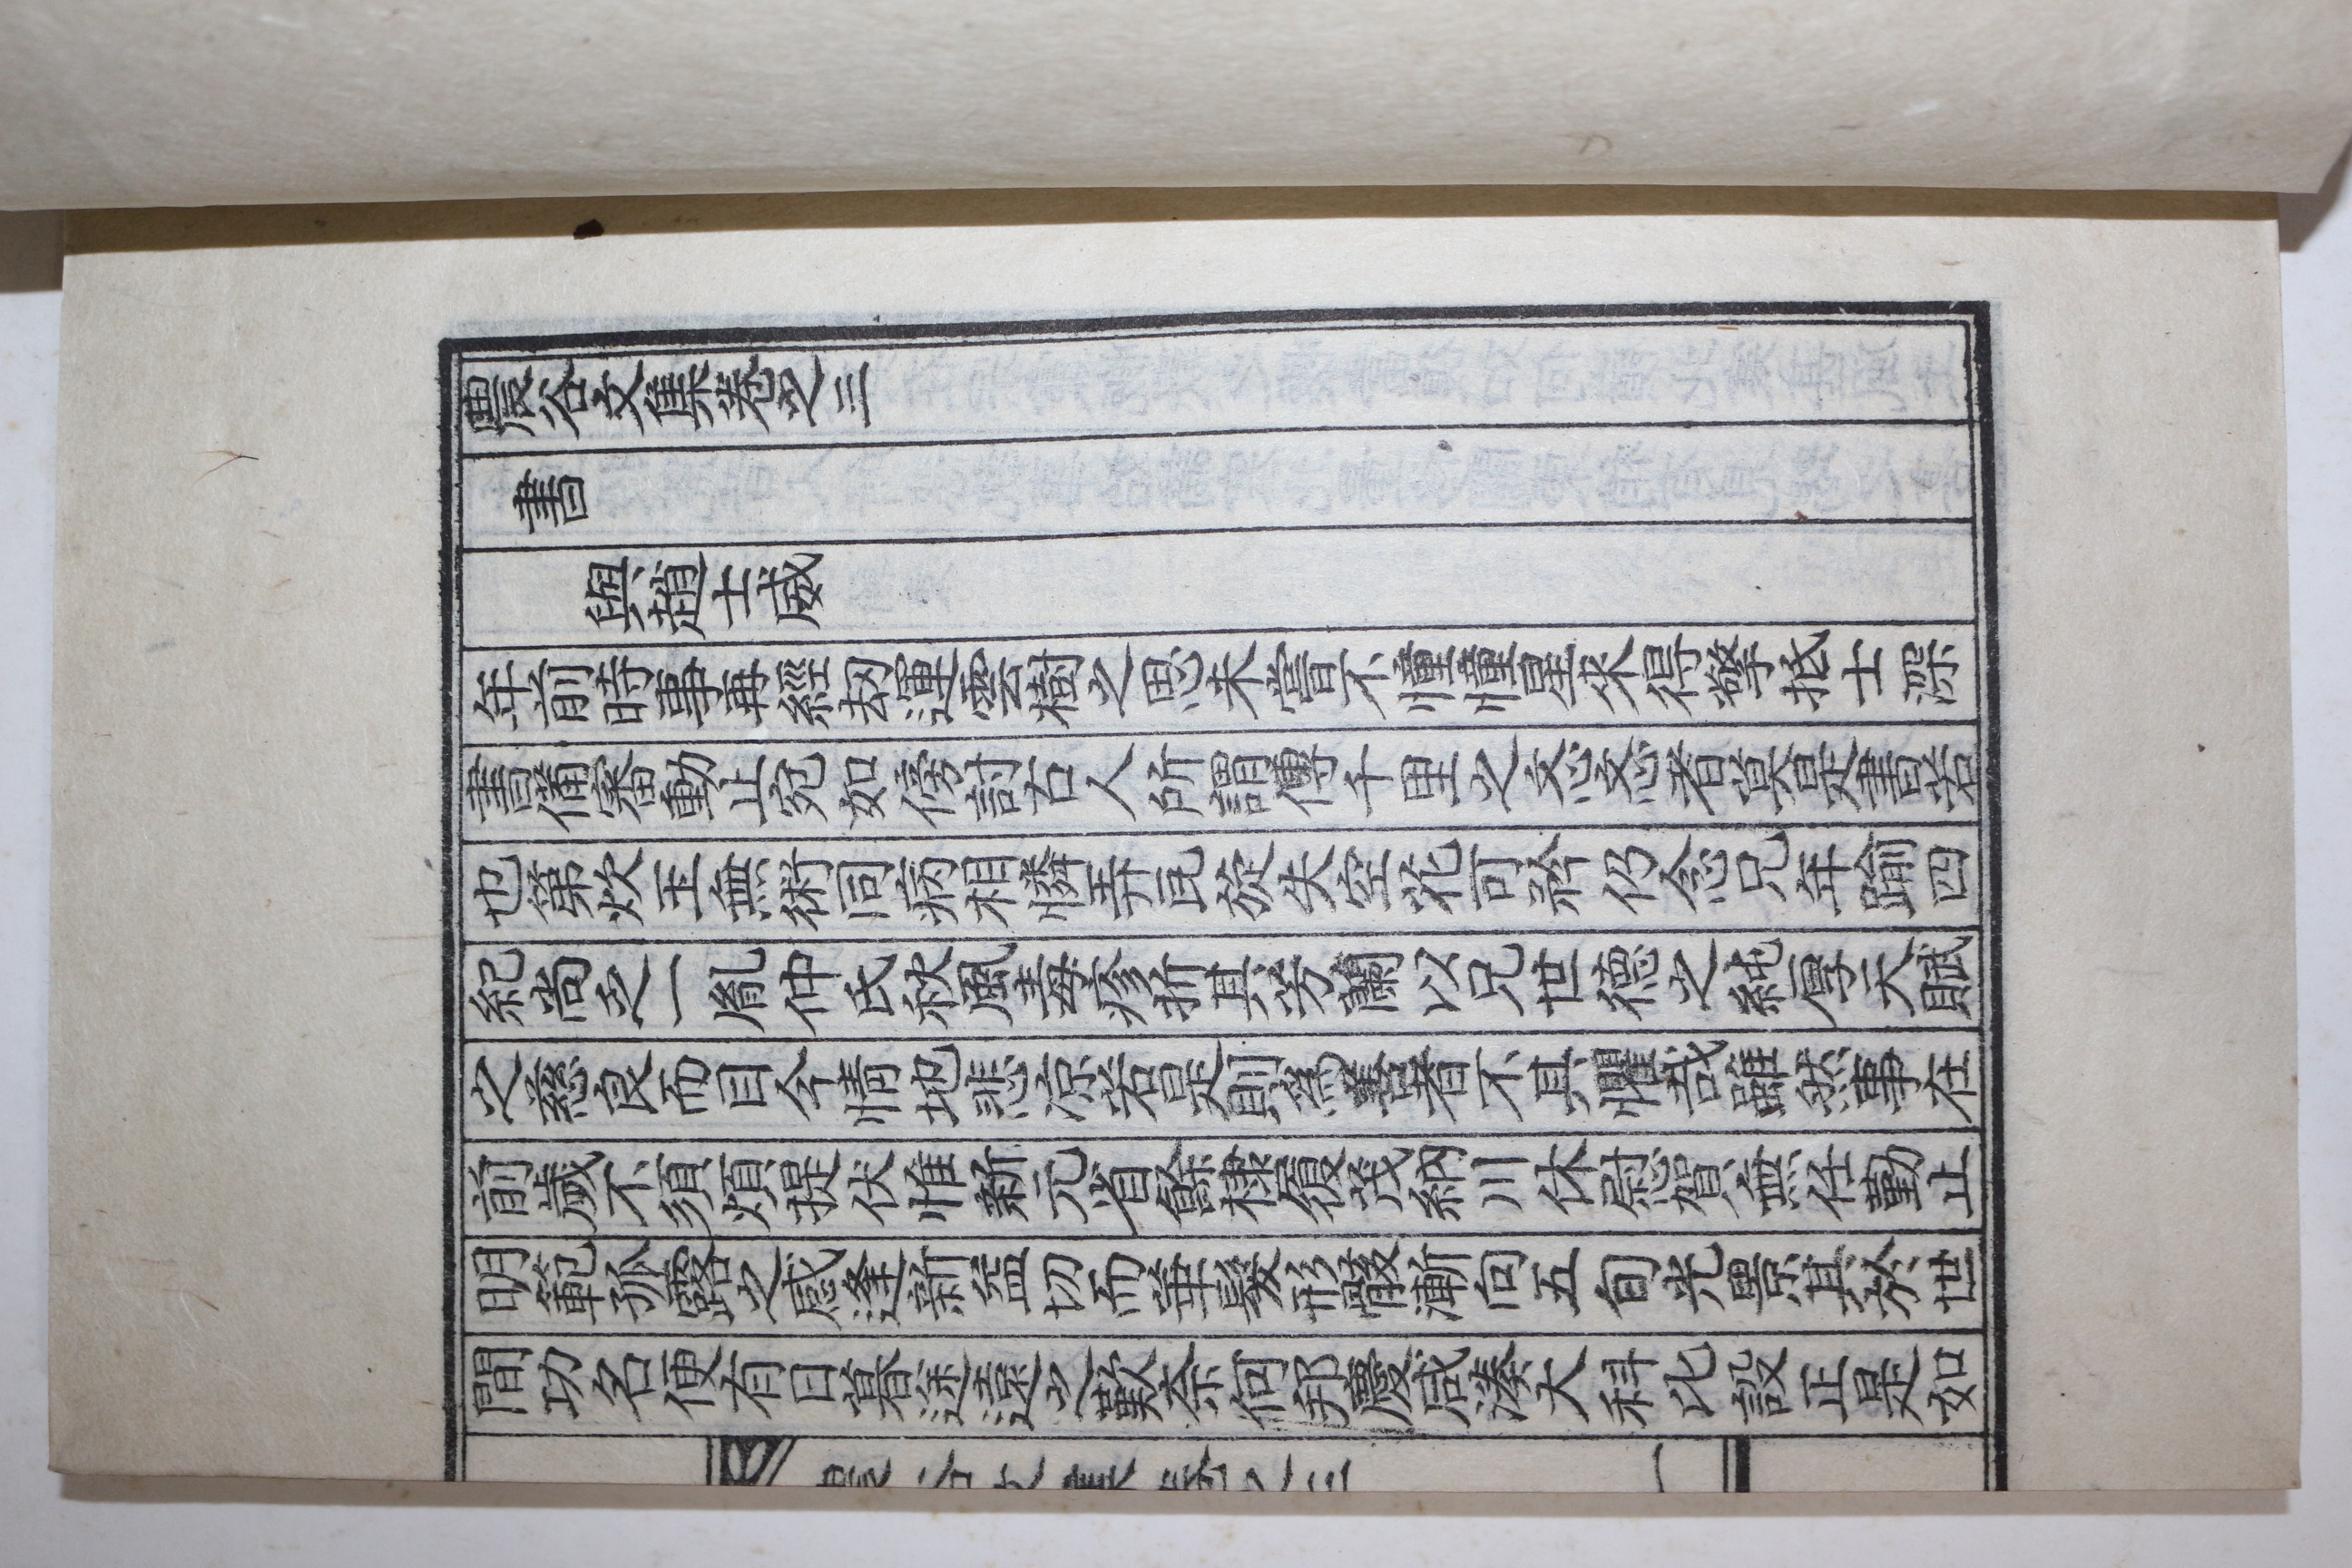 農谷文集卷之三
書
與趙士威
年前時事再經刼運雲樹之思未嘗不憧憧星來得擎抵士深
書備審動止宛如傍討古人所謂傳千里之忞忞者莫是書若
也第炊玉無術同病相憐弄瓦旋失空花可矜仍念兄年踰四
紀尚乏一胤仲氏秋風毒疹折其芳蘭以兄世德之純厚天賦
之慈良而目今情地悲凉若是則爲善者不其懼哉雖然事在
前歲不須煩提伏惟新元省餘棣履茂納川休慰賀無任勤止
明範孤露之感逢新益切而華髮形骸漸向五旬光景其於世
間功名便有日暮途遠之歎奈何邦慶咸湊大科比設正是如
農谷文集卷之三 一